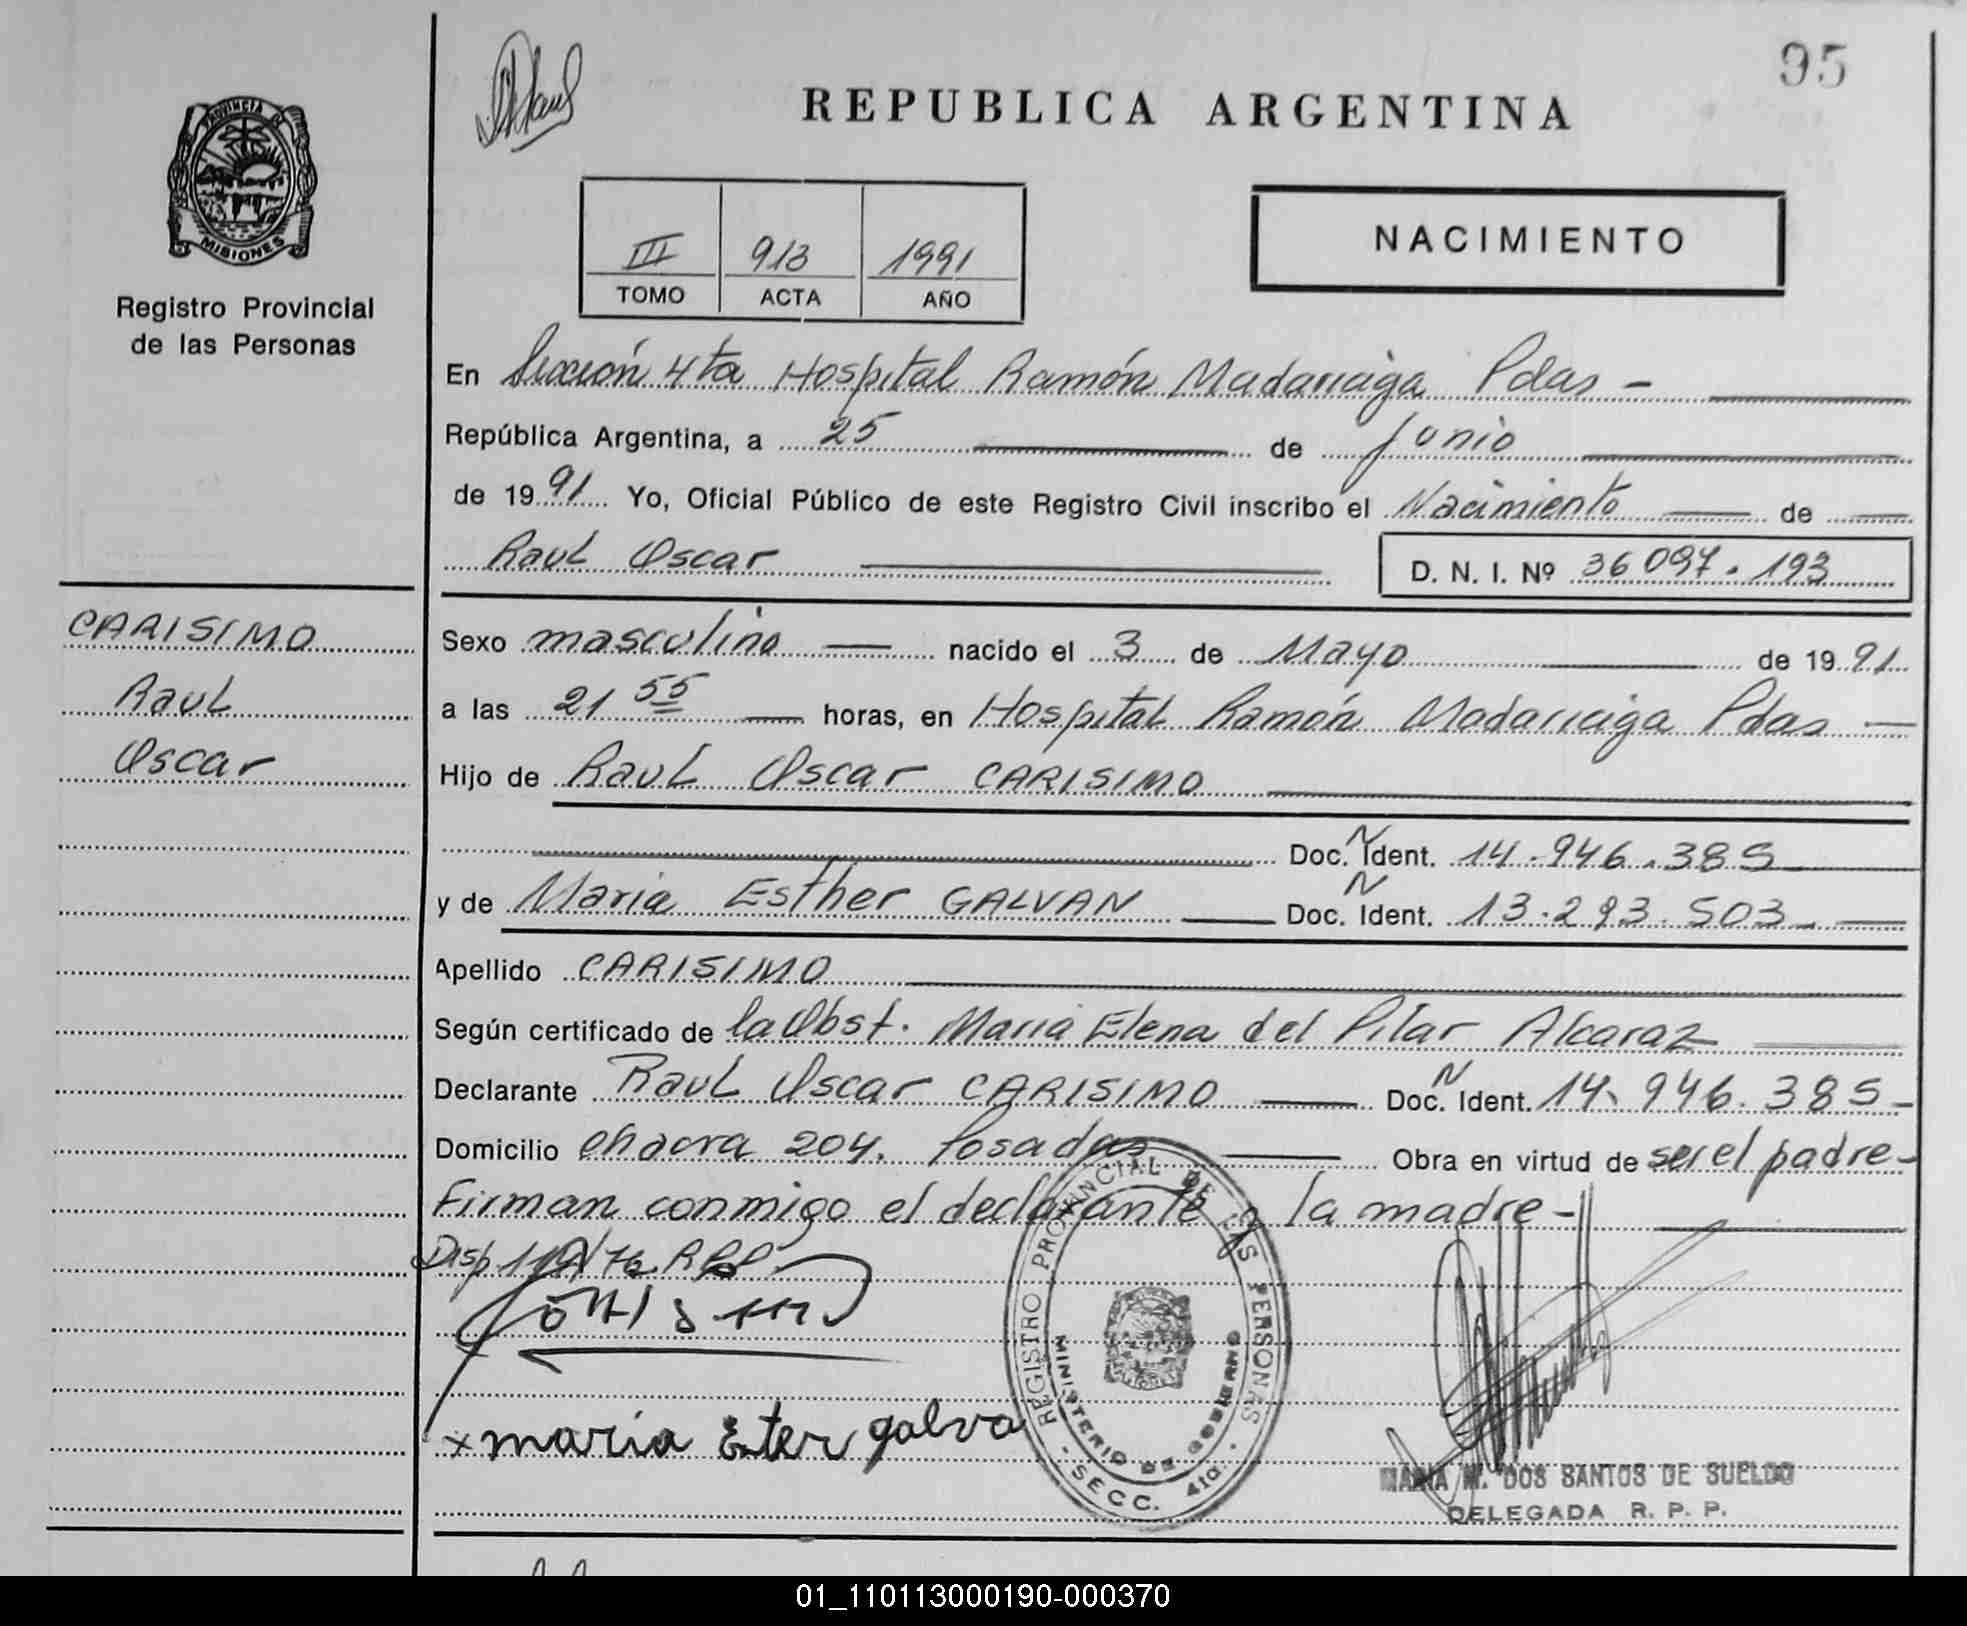 95
REPUBLICA ARGENTINA
PROVINCIA DE
MISIONES
Registro Provincial
de las Personas
III 913 1991
TOMO ACTA AÑO
NACIMIENTO
En Sección 4ta Hospital Ramón Madariaga Pdas -
República Argentina, a 25 de Junio
de 1991 Yo, Oficial Público de este Registro Civil inscribo el Nacimiento de
Raul Oscar D. N. I. Nº 36 097.193
CARISIMO
Raul
Oscar
Sexo masculino nacido el 3 de Mayo de 1991
a las 21 55 horas, en Hospital Ramón Madariaga Pdas
Hijo de Raul Oscar CARISIMO
Doc. N Ident. 14.946.385
y de Maria Esther GALVAN Doc. N Ident. 13.293.503
Apellido CARISIMO
Según certificado de la Obst. Maria Elena del Pilar Alcaraz
Declarante Raul Oscar CARISIMO Doc. N Ident. 14.946.385
Domicilio chacra 204. Posadas Obra en virtud de ser el padre-
Firman conmigo el declarante y la madre-
Disp
x maria Ester galva
REGISTRO PROVINCIAL DE LAS PERSONAS
MINISTERIO DE GOBIERNO
- SECC. 4ta. -
MARIA M. DOS SANTOS DE SUELDO
DELEGADA R. P. P.
01_110113000190-000370